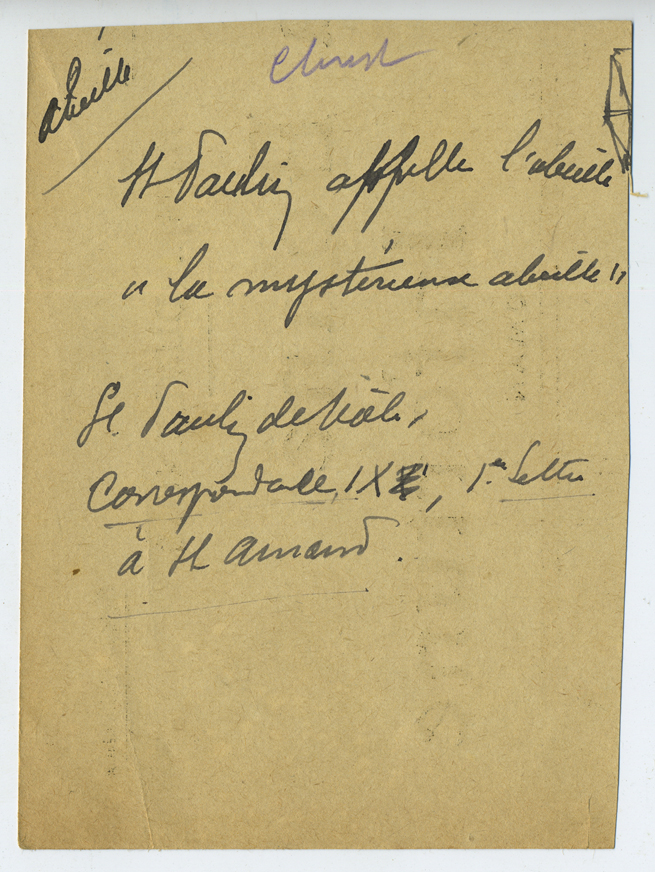 abeille
Christ
St Paulin appelle l'abeille
"la mystérieuse abeille"
St Paulin de Nole,
Correspondance, IX, 1re Lettre
à St Amand.